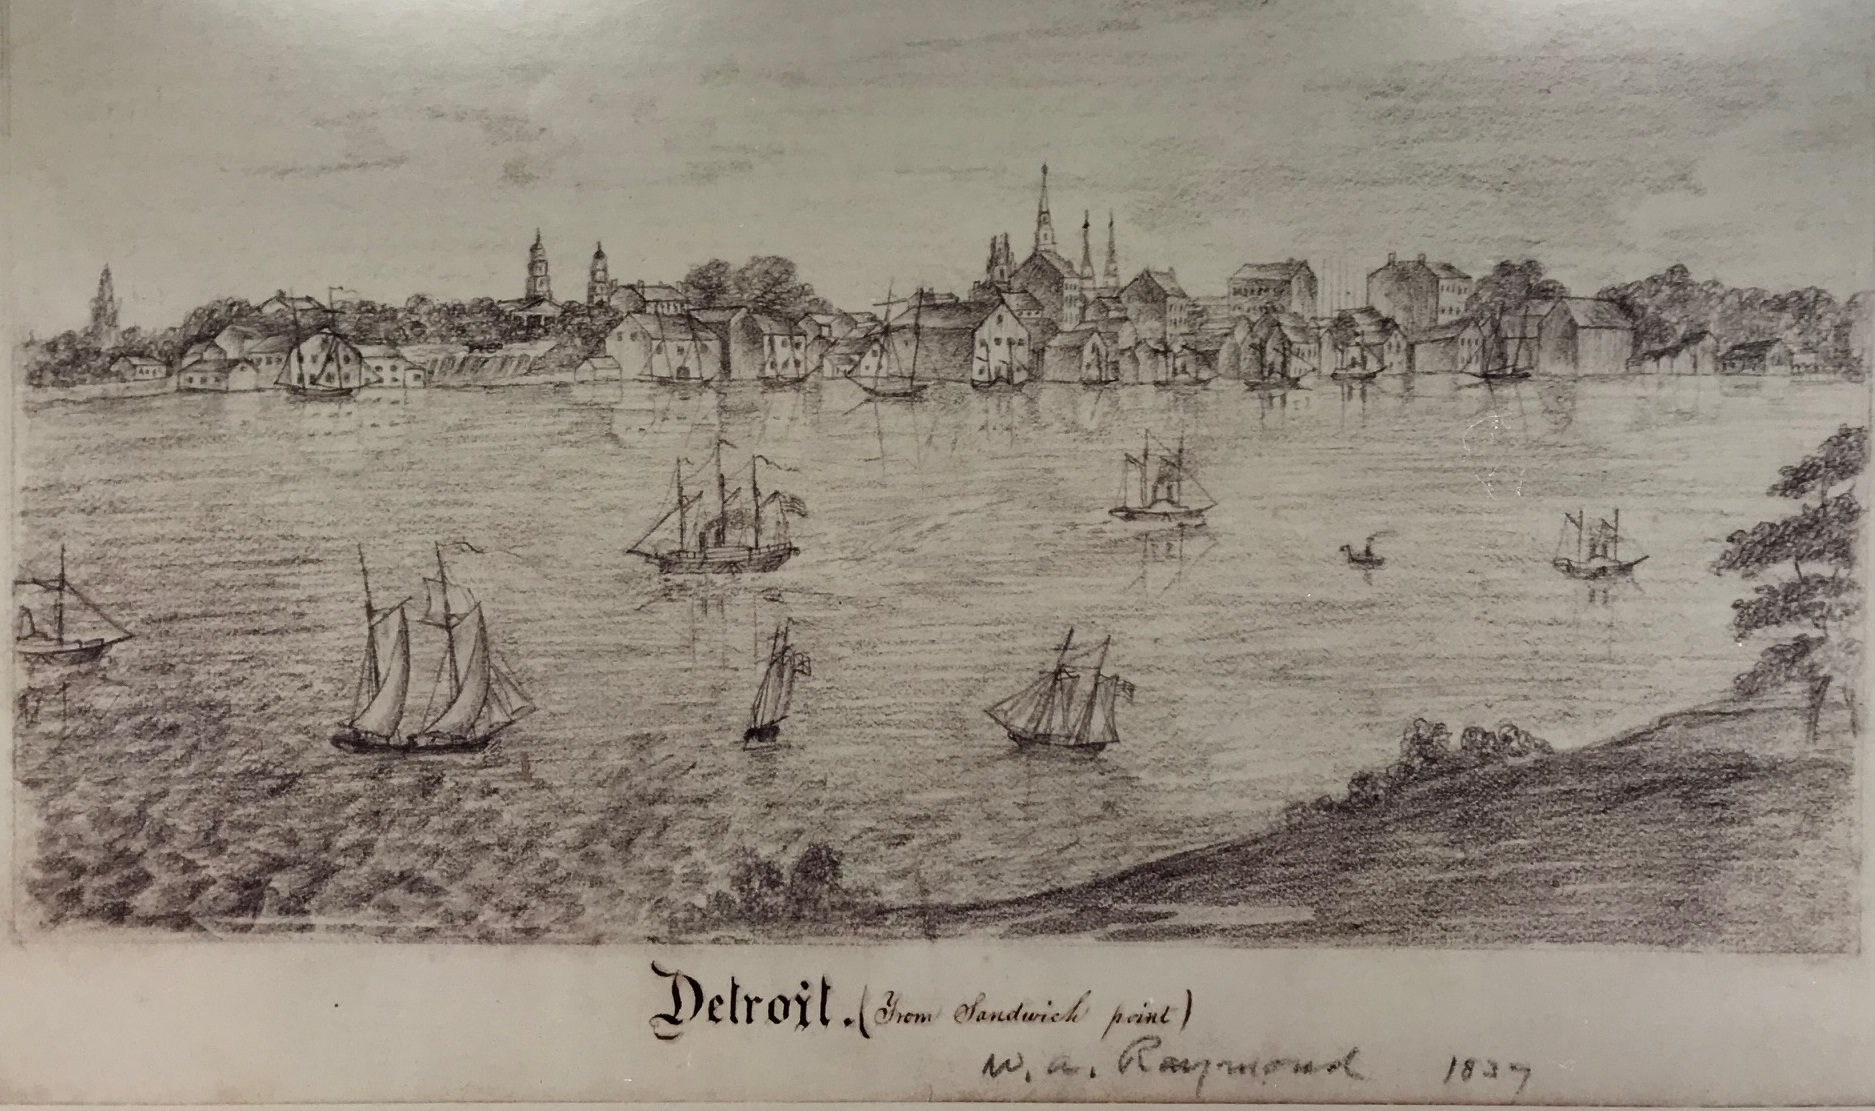 Detroit. (From Sandwich point)
W. A. Raymond 1837